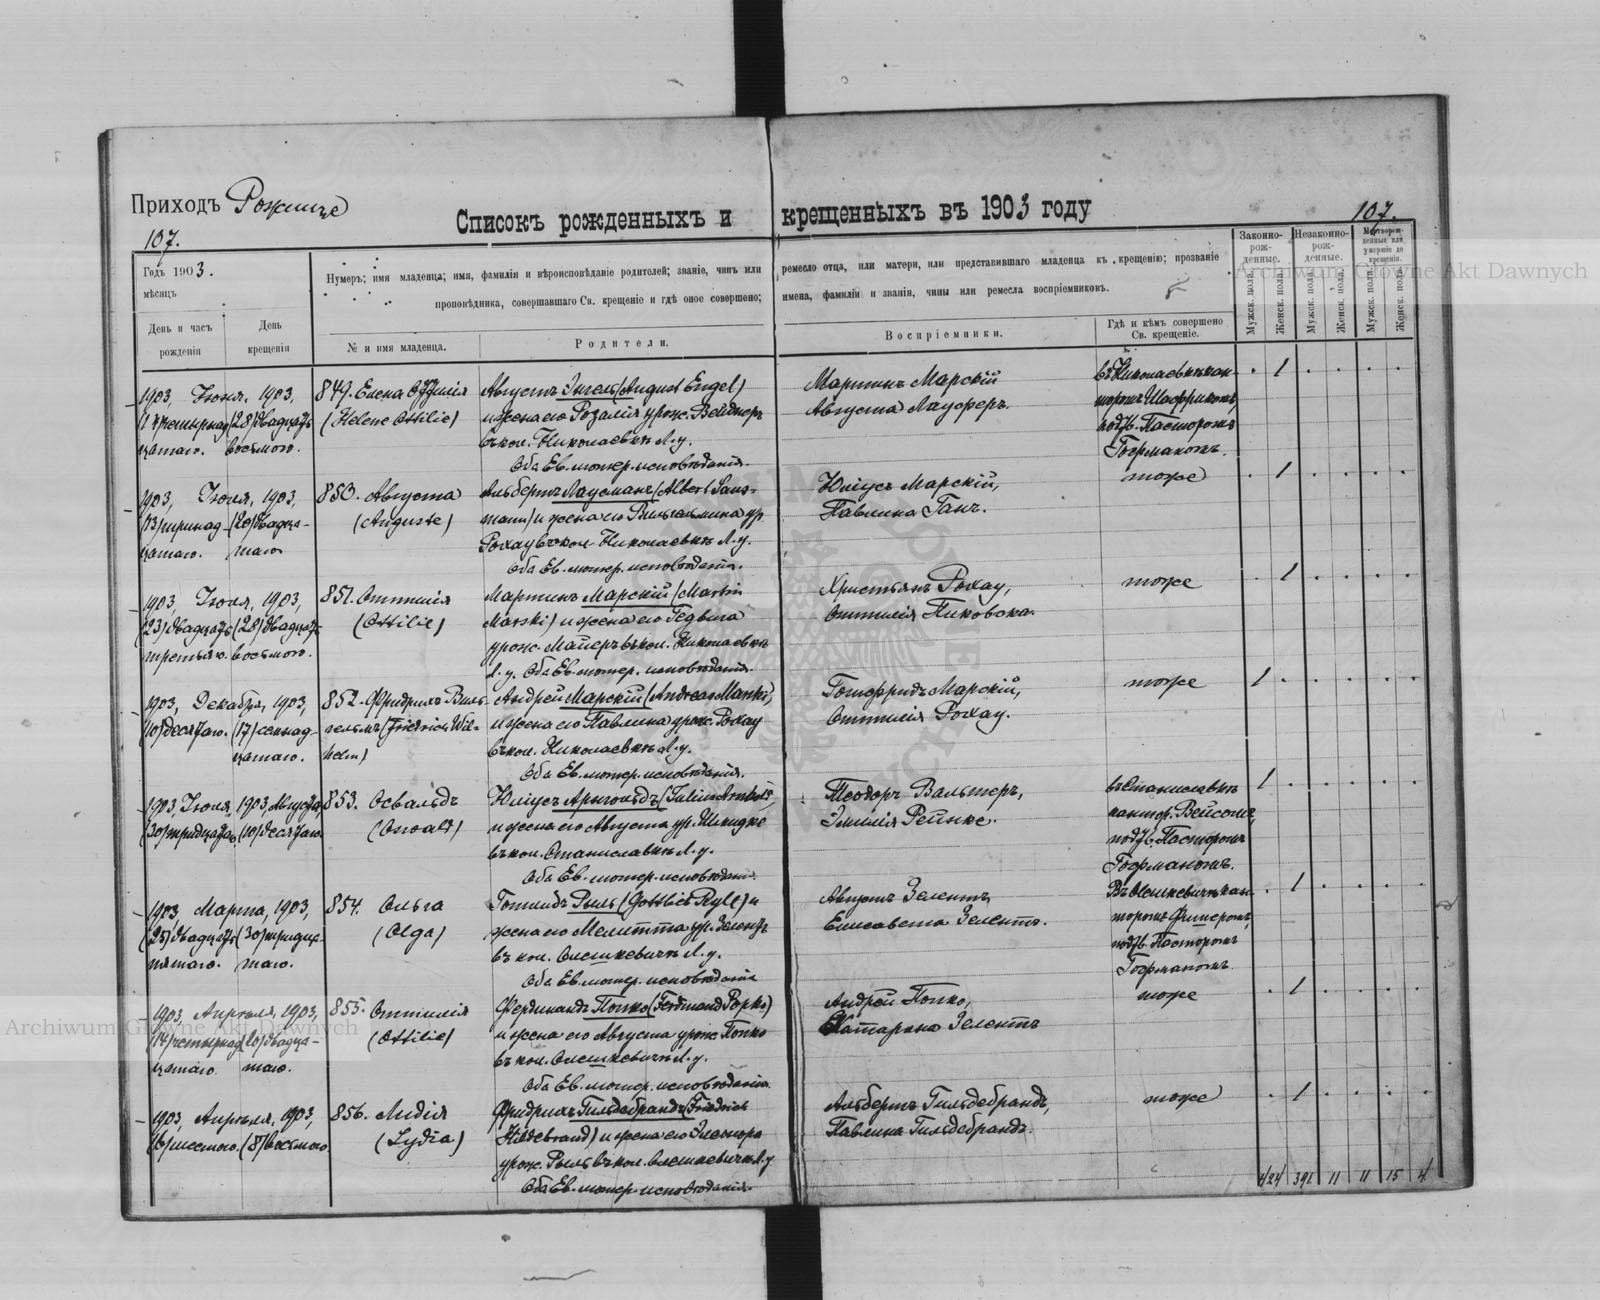 Приходъ Рожище
Списокъ рожденныхъ и крещенныхъ въ 1903 году
107.
107.
Годъ 1903.
мѣсяцъ
День и часъ рожденія
День крещенія
Нумеръ; имя младенца; имя, фамилія и вѣроисповѣданіе родителей; званіе, чинъ или ремесло отца, или матери, или представившаго младенца къ крещенію; прозваніе
проповѣдника, совершавшаго Св. крещеніе и гдѣ оное совершено; имена, фамиліи и званія, чины или ремесла воспріемниковъ.
№ и имя младенца.
Родители.
Воспріемники.
Гдѣ и кѣмъ совершено
Св. крещеніе.
Законно-рож-денные.
Незаконно-рож-денные.
Мертворож-денные или умершіе до крещенія.
Мужск. пола.
Женск. пола.
Мужск. пола.
Женск. пола.
Мужск. пола.
Женск. пола.
Archiwum Główne Akt Dawnych
1903, Іюля, 1903,
(14) четырнад-
цатаго.
(28) двадцать
восьмого.
849. Елена Оттилія
(Helene Ottilie)
Августъ Энгель (August Engel)
и жена его Розалія урож. Вейднеръ
въ кол. Николаевкѣ Л. у.
Оба Ев. лютер. исповѣданія.
Мартинъ Марскій
Августа Лауферъ.
въ Николаевкѣ кан-
торомъ
подтв. Пасторомъ
Гофманомъ.
1903, Іюля, 1903,
(13) тринад-
цатаго.
(20) двадца-
таго
850. Августа
(Auguste)
Альбертъ Лаусманъ (Albert Laus-
mann) и жена его Вильгельмина ур.
Рохау въ кол. Николаевкѣ Л. у.
Оба Ев. лютер. исповѣданія.
Юліусъ Марскій,
Павлина Ганъ.
тоже
1903, Іюля, 1903,
(23) двадцать
третьяго.
(28) двадцать
восьмого.
851. Оттилія
(Ottilie)
Мартинъ Марскій (Martin
Marski) и жена его Гедвига
урож. Майеръ въ кол. Николаевкѣ
Л. у. Оба Ев. лютер. исповѣданія
Христьянъ Рохау,
Оттилія Пиковска.
тоже
1903, Декабря, 1903,
(10) десятаго.
(17) семнад-
цатаго.
852. Фридрихъ Виль-
гельмъ (Friedrich Wil-
helm)
Андрей Марскій (Andreas Marski),
и жена его Павлина урож. Рохау
въ кол. Николаевкѣ Л. у.
Оба Ев. лютер. исповѣданія.
Готфридъ Марскій,
Оттилія Рохау.
тоже
1903, Іюля, 1903, Августа,
(30) тридцатаго,
(10) десятаго.
853. Освальдъ
(Oswald)
Юліусъ Арнгольдъ (Julius Arnhold)
и жена его Августа ур.
въ кол. Станиславкѣ Л. у.
Оба Ев. лютер. исповѣданія.
Теодоръ Вальтеръ,
Эмилія Рейнке.
въ Станиславкѣ
кантор.
подтв. Пасторомъ
Гофманомъ.
1903, Марта, 1903,
(25) двадцать
пятаго.
(30) тридца-
таго.
854. Ольга
(Olga)
Готлибъ Рыль (Gottlieb Ryll) и
жена его Мелитта ур. Зелентъ
въ кол. Олешкевичѣ Л. у.
Оба Ев. лютер. исповѣданія
Августъ Зелентъ,
Елисавета Зелентъ.
Въ Олешкевичѣ кан-
торомъ Фишеромъ,
подтв. Пасторомъ
Гофманомъ.
1903, Апрѣля, 1903,
(14) четырнад-
цатаго.
(20) двадца-
таго.
855. Оттилія
(Ottilie)
Фердинандъ Попко (Ferdinand Popko)
и жена его Августа урож. Попко
въ кол. Олешкевичѣ Л. у.
Оба Ев. лютер. исповѣданія.
Андрей Попко,
Катарина Зелентъ
тоже
Archiwum Główne Akt Dawnych
1903, Апрѣля, 1903,
(6) шестого.
(8) восьмого
856. Лидія
(Lydia)
Фридрихъ Гильдебрандъ (Friedrich
Hildebrand) и жена его Элеонора
урож. Рыль въ кол. Олешкевичѣ Л. у
Оба Ев. лютер. исповѣданія.
Альбертъ Гильдебрандъ,
Павлина Гильдебрандъ.
тоже
424 391 11 11 15 4